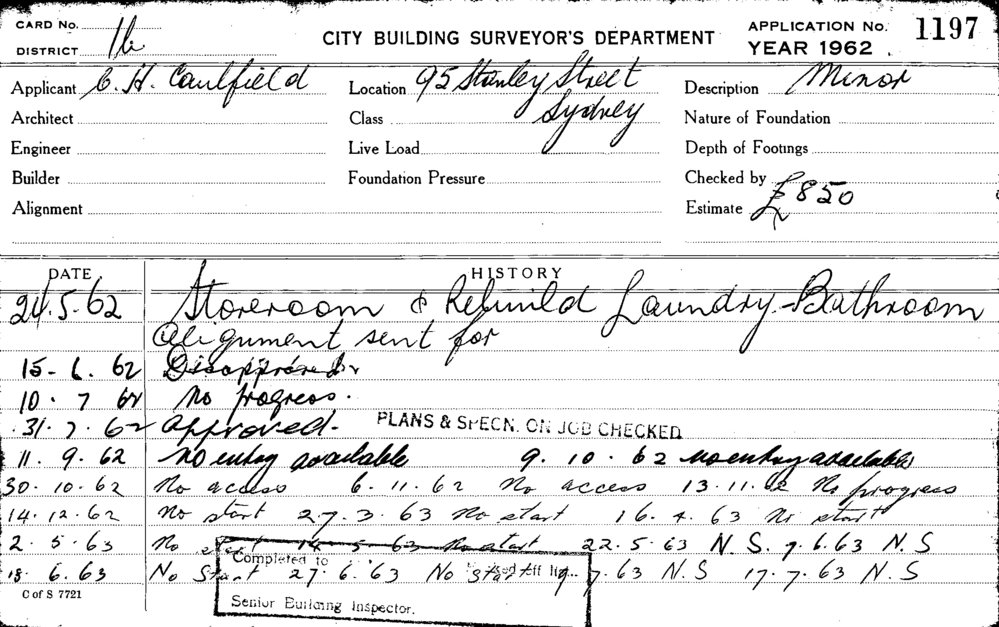 CARD No.
DISTRICT 16
CITY BUILDING SURVEYOR'S DEPARTMENT
APPLICATION No. 1197
YEAR 1962
Applicant C. H. Caulfield Location 95 Stanley Street Description Minor
Architect Class Sydney Nature of Foundation
Engineer Live Load Depth of Footings
Builder Foundation Pressure Checked by
Alignment Estimate £850
DATE HISTORY
24.5.62 Storeroom & Rebuild Laundry-Bathroom
Alignment sent for
15-6.62 Disapproved
10.7 62 No progress.
31.7.62 Approved. PLANS & SPECN. ON JOB CHECKED
11.9.62 No entry available 9.10.62 no entry available
30.10.62 No access 6.11.62 No access 13.11.62 No progress
14.12.62 No start 27.3.63 No start 16.4.63 No start
2.5.63 No start 14.5.63 No start 22.5.63 N.S. 7.6.63 N.S
18.6.63 No Start 27.6.63 No start 9.7.63 N.S 17.7.63 N.S
Completed to
Senior Building Inspector.
C of S 7721